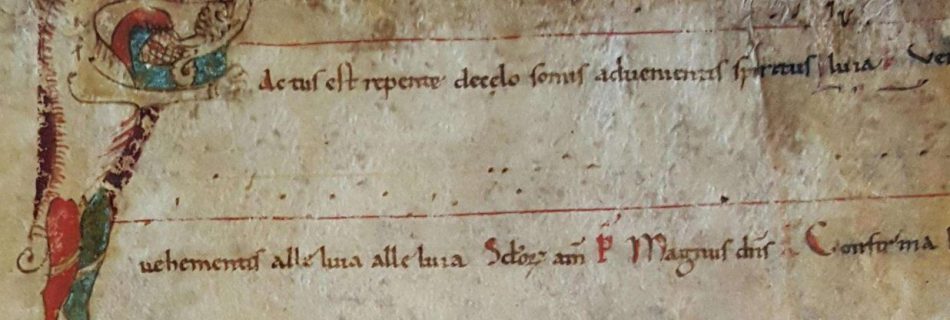 Factus est repente de celo sonus advenientis spiritus luia Ve
vehementis alleluia alleluia Sclor am P Magnus dns Confirma